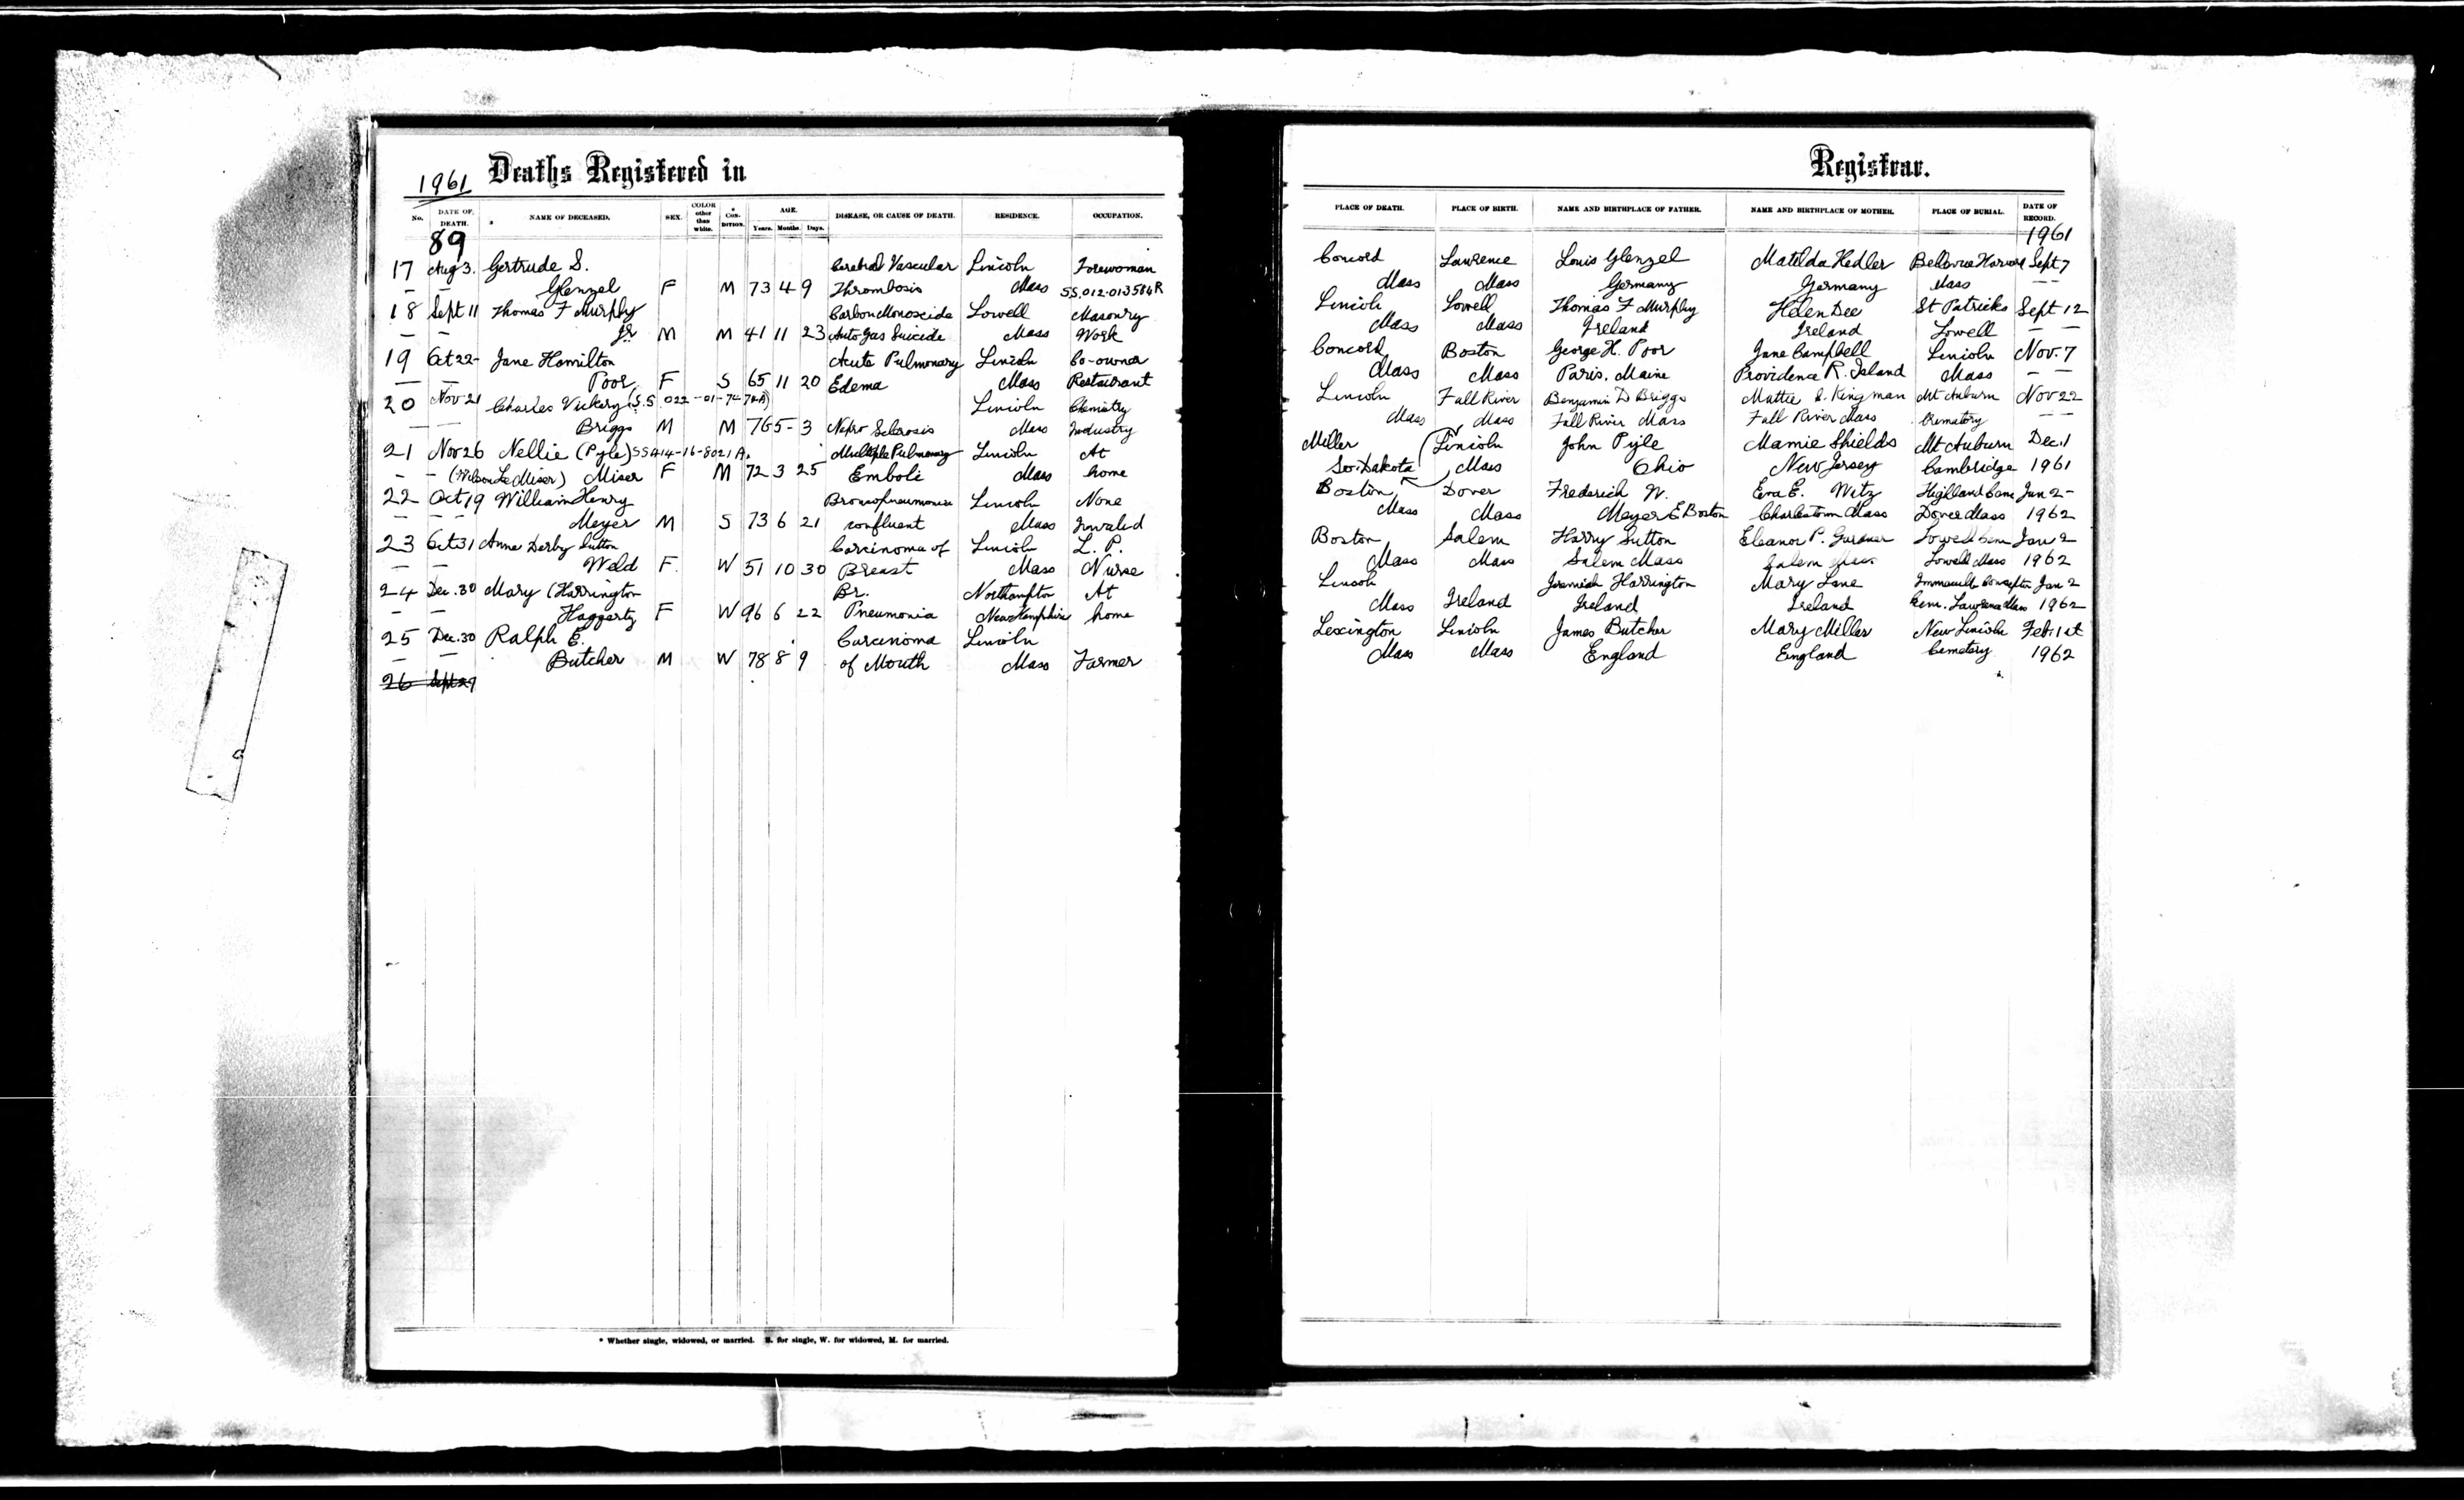 1961 Deaths Registered in
No. DATE OF DEATH. NAME OF DECEASED. SEX. COLOR other than white. * CON-DITION. AGE. Years. Months. Days. DISEASE, OR CAUSE OF DEATH. RESIDENCE. OCCUPATION.
89
17 Aug 3. Gertrude S. Cerebral Vascular Lincoln Forewoman
— — Glenzel F M 73 4 9 Thrombosis Mass SS.012-013584R
18 Sept 11 Thomas F Murphy Carbon Monoxide Lowell Masonry
— Jr M M 41 11 23 Auto Gas Suicide Mass Work
19 Oct 22- Jane Hamilton Acute Pulmonary Lincoln Co-owner
— — Poor F S 65 11 20 Edema Mass Restaurant
20 Nov 21 Charles Vickery (S.S. 022-01-7474A) Lincoln Chemistry
— — Briggs M M 76 5- 3 Nefro Sclerosis Mass Industry
21 Nov 26 Nellie (Pyle) SS A14-16-8021 A. Multiple Pulmonary Lincoln At
— — Miser) Miser F M 72 3 25 Emboli Mass home
22 Oct 19 William Henry Broncopneumonia Lincoln None
— — Meyer M S 73 6 21 confluent Mass Invalid
23 Oct 31 Anne Derby Sutton Carcinoma of Lincoln L. P.
— — Weld F. W 51 10 30 Breast Mass Nurse
24 Dec. 30 Mary (Harrington Br. Northampton At
— — Haggerty F W 96 6 22 Pneumonia New Hampshire home
25 Dec. 30 Ralph E. Carcinoma Lincoln
— — Butcher M W 78 8 9 of Mouth Mass Farmer
26 Sept 29
* Whether single, widowed, or married. S. for single, W. for widowed, M. for married.
Registrar.
PLACE OF DEATH. PLACE OF BIRTH. NAME AND BIRTHPLACE OF FATHER. NAME AND BIRTHPLACE OF MOTHER. PLACE OF BURIAL. DATE OF RECORD.
1961
Concord Lawrence Louis Glenzel Matilda Hedler Bellevue Harvard Sept 7
Mass Mass Germany Germany Mass — —
Lincoln Lowell Thomas F Murphy Helen Dee St Patricks Sept 12
Mass Mass Ireland Ireland Lowell — —
Concord Boston George H. Poor Jane Campbell Lincoln Nov. 7
Mass Mass Paris, Maine Providence R. Island Mass — —
Lincoln Fall River Benjamin D Briggs Mattie C. Kingman Mt Auburn Nov 22
Mass Mass Fall River Mass Fall River Mass Crematory — —
Miller Lincoln John Pyle Mamie Shields Mt Auburn Dec. 1
So. Dakota Mass Ohio New Jersey Cambridge 1961
Boston Dover Frederick W. Eva E. Witz Highland Cem Jan 2-
Mass Mass Meyer E Boston Charlestown Mass Dover Mass 1962
Boston Salem Harry Sutton Eleanor P. Gardner Lowell Cem Jan 2
Mass Mass Salem Mass Salem Mass Lowell Mass 1962
Lincoln Jeremiah Harrington Mary Lane Immaculate Conception Jan 2
Mass Ireland Ireland Ireland Cem. Lawrence Mass 1962
Lexington Lincoln James Butcher Mary Miller New Lincoln Feb. 1st
Mass Mass England England Cemetery 1962